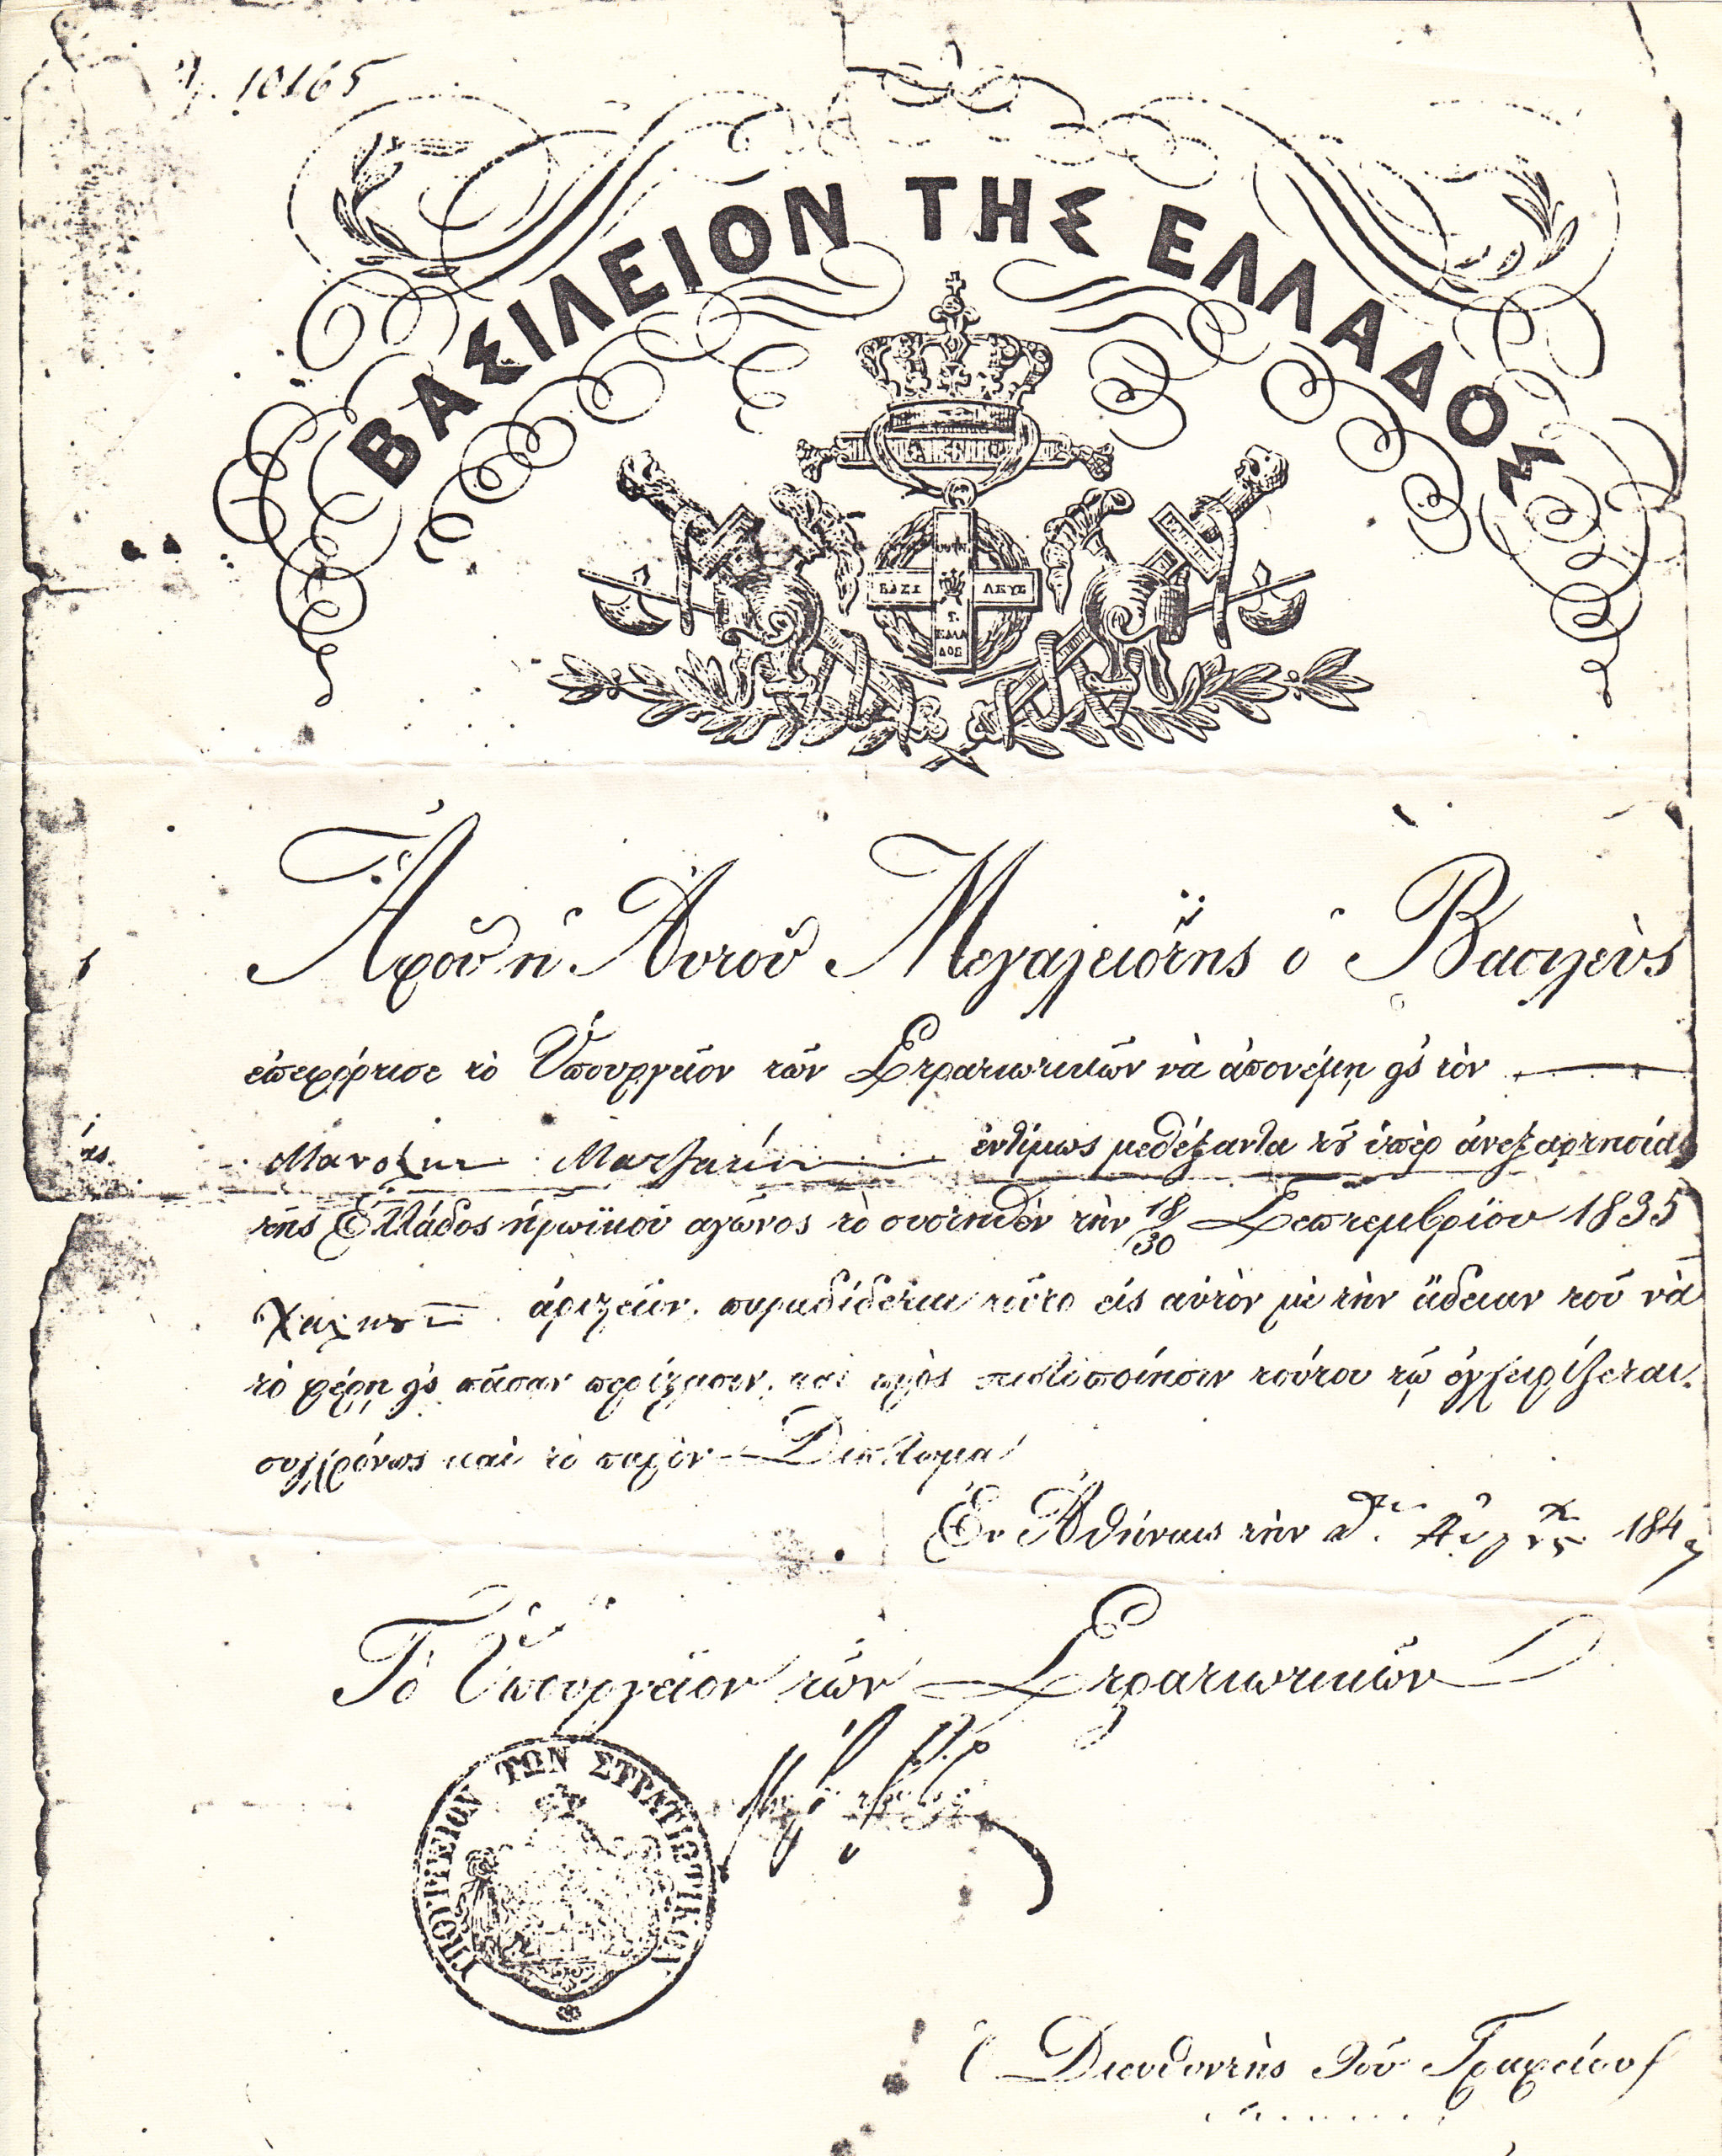 10165
ΒΑΣΙΛΕΙΟΝ ΤΗΣ ΕΛΛΑΔΟΣ
ΒΑΣΙ ΛΕΥΣ
ΕΛΛΑ
ΔΟΣ
Ἀφοῦ ἡ Αὐτοῦ Μεγαλειότης ὁ Βασιλεὺς
ἐπεφόρτισε τὸ Ὑπουργεῖον τῶν Στρατιωτικῶν νὰ ἀπονέμῃ εἰς τὸν
ἐντίμως μεθέξαντα τοῦ ὑπὲρ ἀνεξαρτησίας
τῆς Ἑλλάδος ἡρωϊκοῦ ἀγῶνος τὸ συστηθὲν τὴν 18/30 Σεπτεμβρίου 1835
ἀριστεῖον, παραδίδεται τοῦτο εἰς αὐτὸν μὲ τὴν ἄδειαν τοῦ νὰ
τὸ φέρῃ εἰς πᾶσαν περίστασιν, καὶ πρὸς πιστοποίησιν τούτου τῷ ἐγχειρίζεται
συγχρόνως καὶ τὸ παρὸν Δίπλωμα
Ἐν Ἀθήναις τὴν 184
Τὸ Ὑπουργεῖον τῶν Στρατιωτικῶν
ΥΠΟΥΡΓΕΙΟΝ ΤΩΝ ΣΤΡΑΤΙΩΤΙΚΩΝ
Ὁ Διευθυντὴς τοῦ Γραφείου